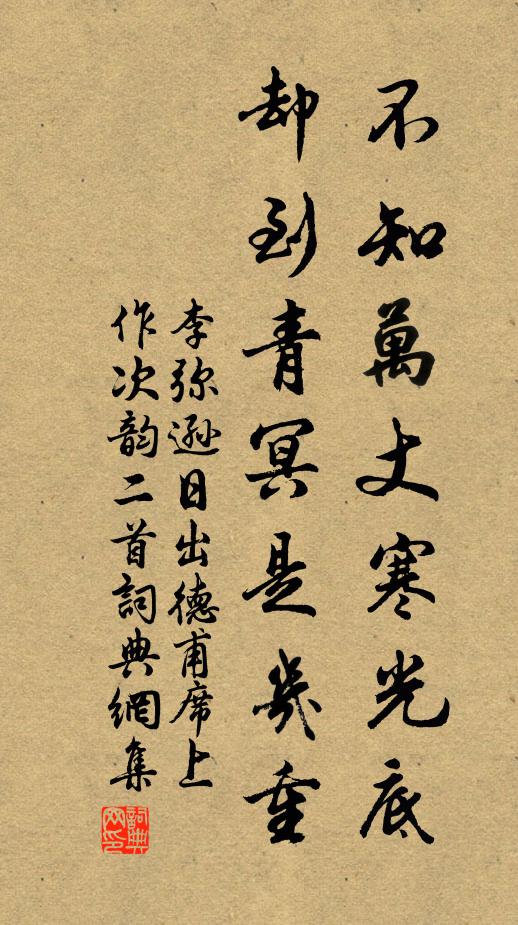 不知萬丈寒光底
却到青冥是幾重
李弥遜日出德甫席上
作次韵二首詞典網集
詞典网印